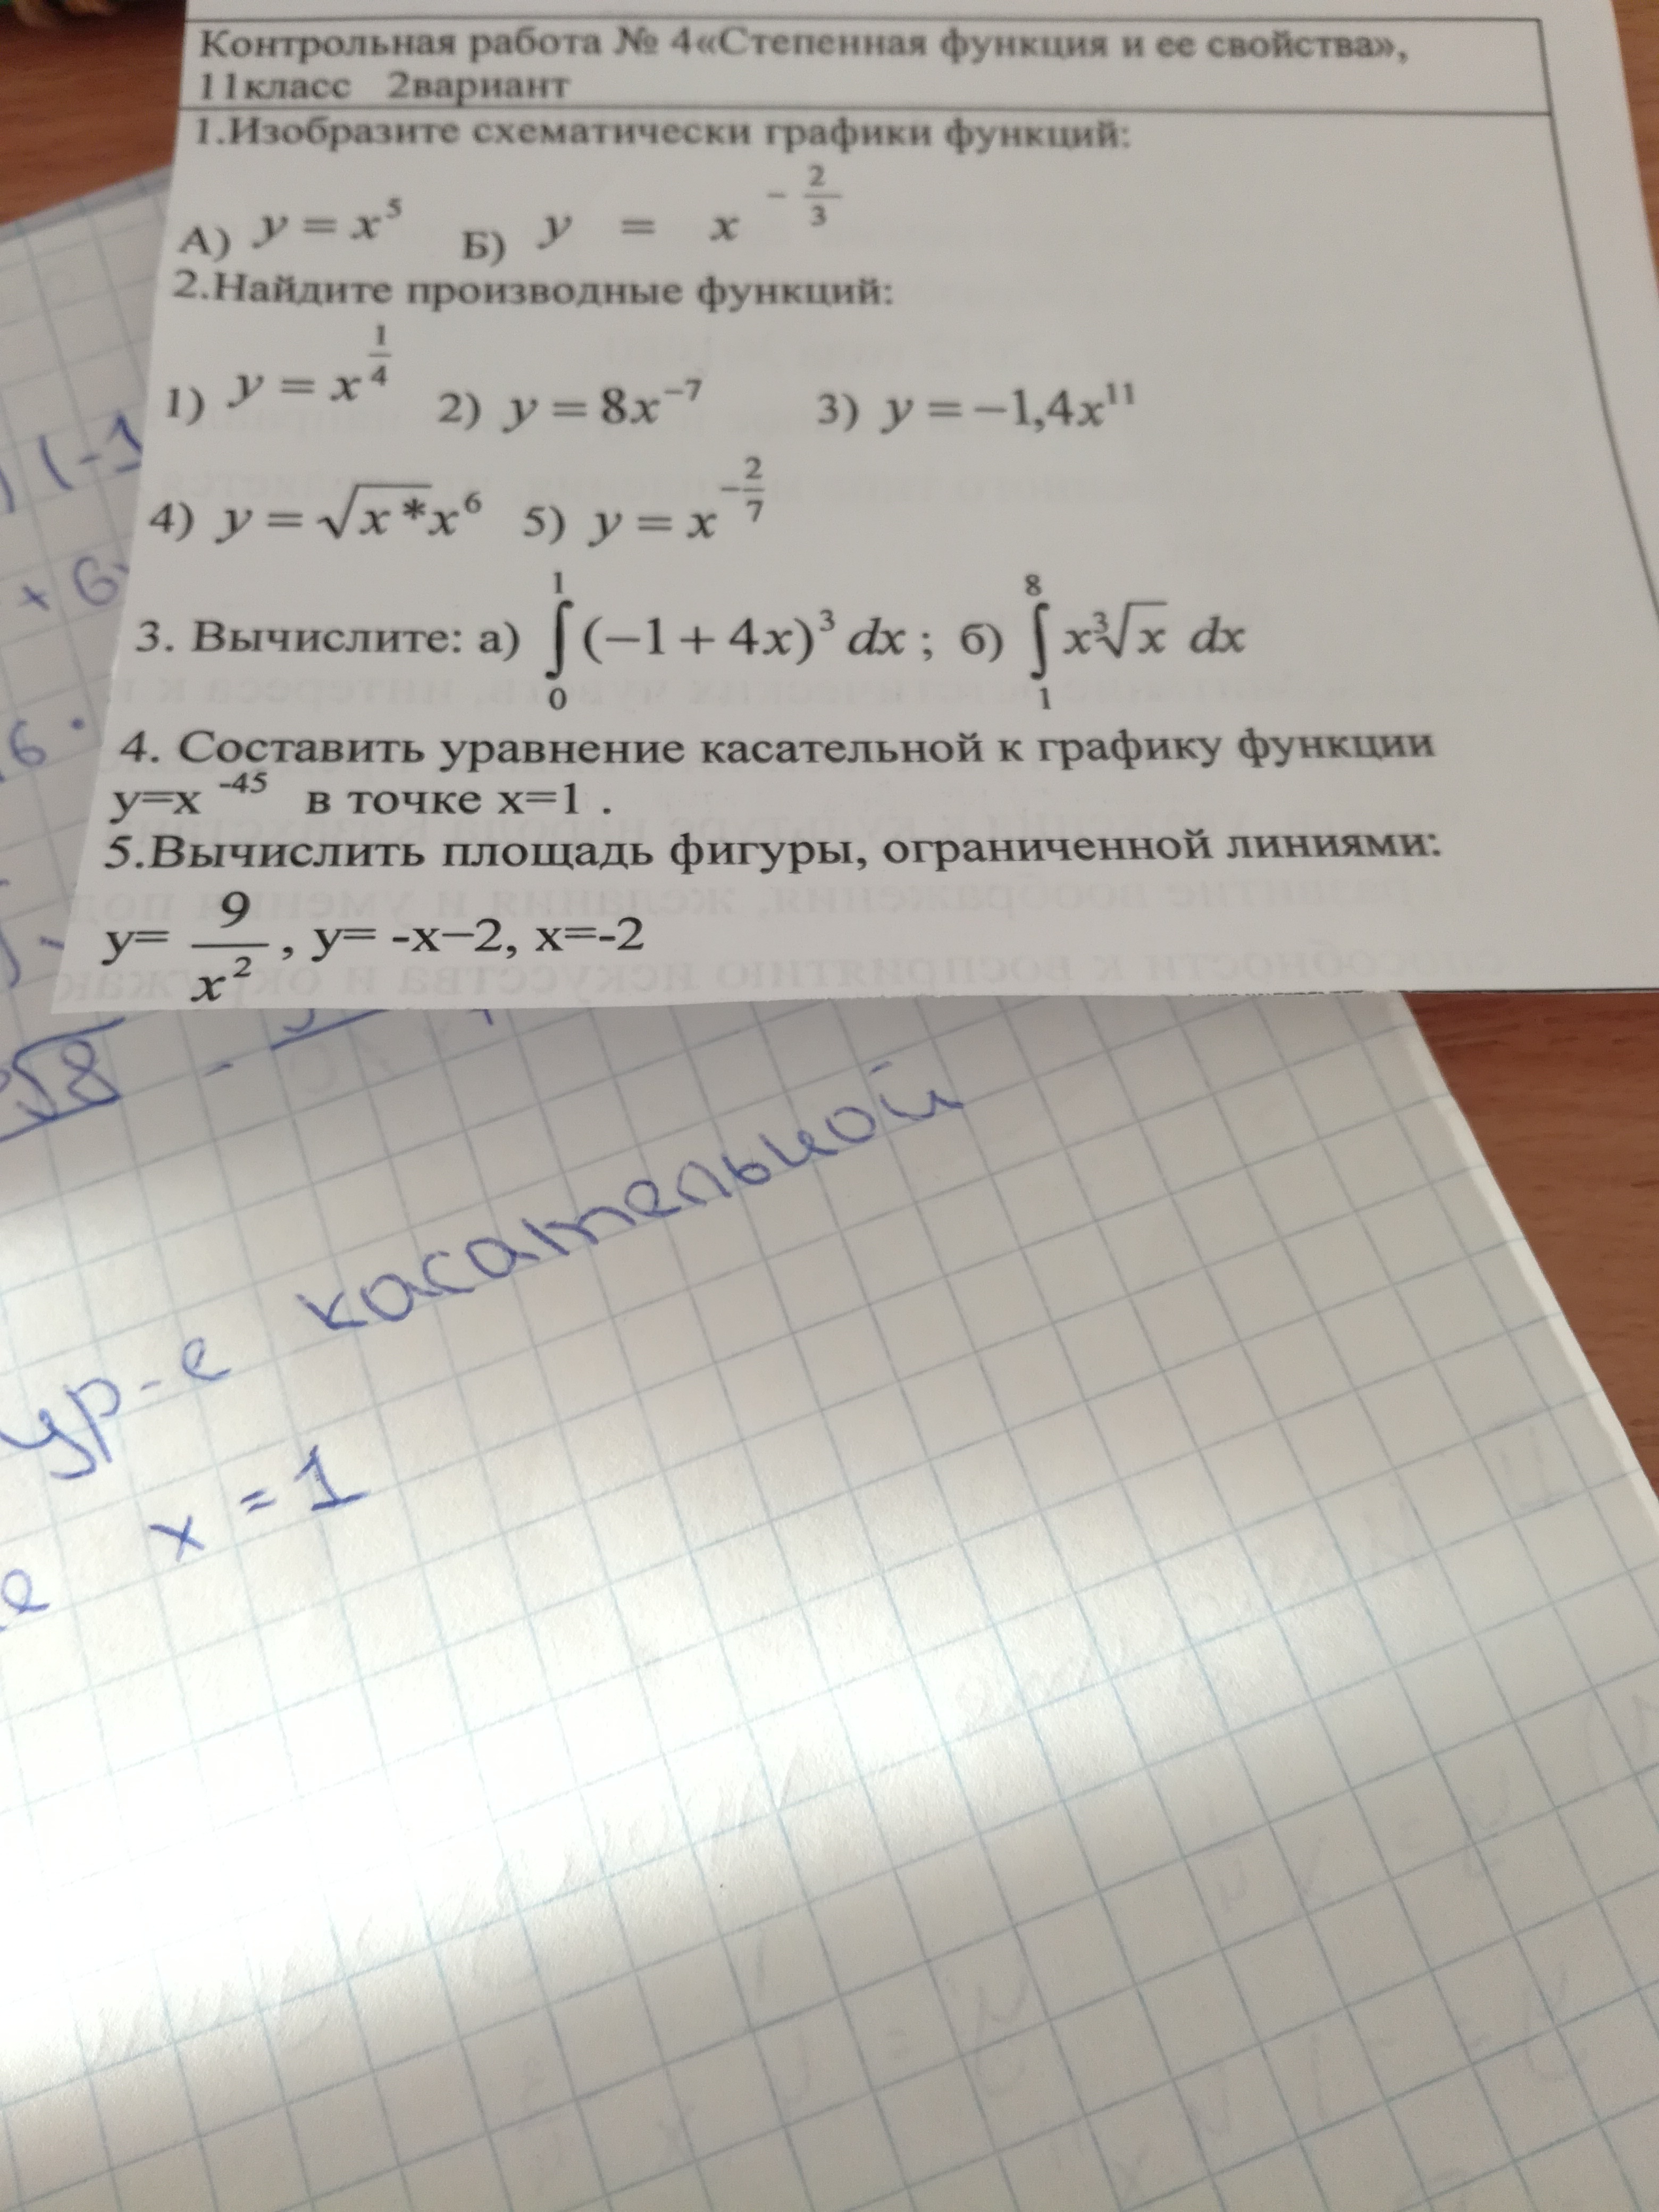 Контрольная работа № 4«Степенная функция и ее свойства»,
11класс 2вариант
1.Изобразите схематически графики функций:
А) y = x^5 Б) y = x^{-2/3}
2.Найдите производные функций:
1) y = x^{1/4} 2) y = 8x^{-7} 3) y = −1,4x^{11}
4) y = √(x *)x^6 5) y = x^{-2/7}
3. Вычислите: а) ∫_0^1 (−1 + 4x)^3 dx ; б) ∫_1^8 x∛x dx
4. Составить уравнение касательной к графику функции
y=x^{-45} в точке x=1 .
5.Вычислить площадь фигуры, ограниченной линиями:
y= 9/x^2 , y= -x−2, x=-2
(-1
x 6
6 ·
√8 -
ур-е касательной
е x = 1